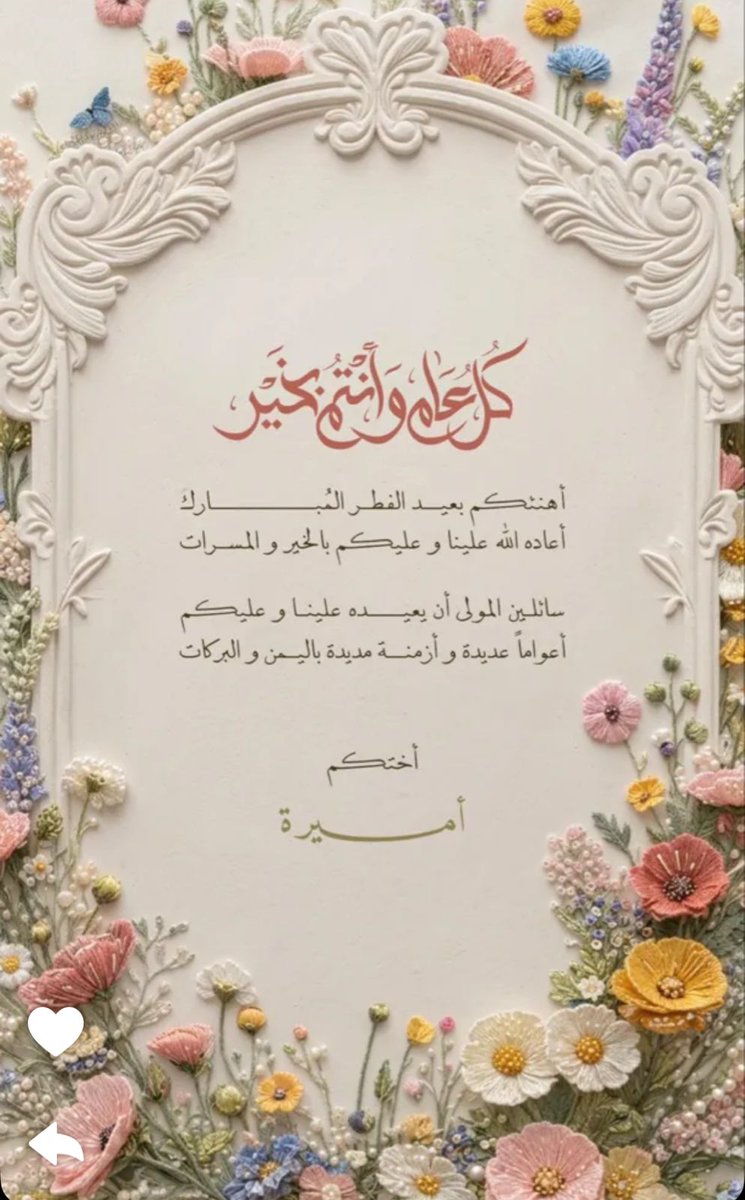 كُلُّ عَام وَأَنْتُمْ بِخَيْر
أهنئكم بعيد الفطر المُبارك
أعاده الله علينا و عليكم بالخير و المسرات
سائلين المولى أن يعيده علينا و عليكم
أعواماً عديدة و أزمنة مديدة باليمن و البركات
أختكم
أميرة